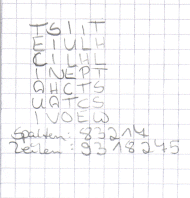 T S I I T
E I U L H
C I L H L
I N E P T
A H C T S
U A T C S
I V O E W
Spalten: 83214
Zeilen: 9318245